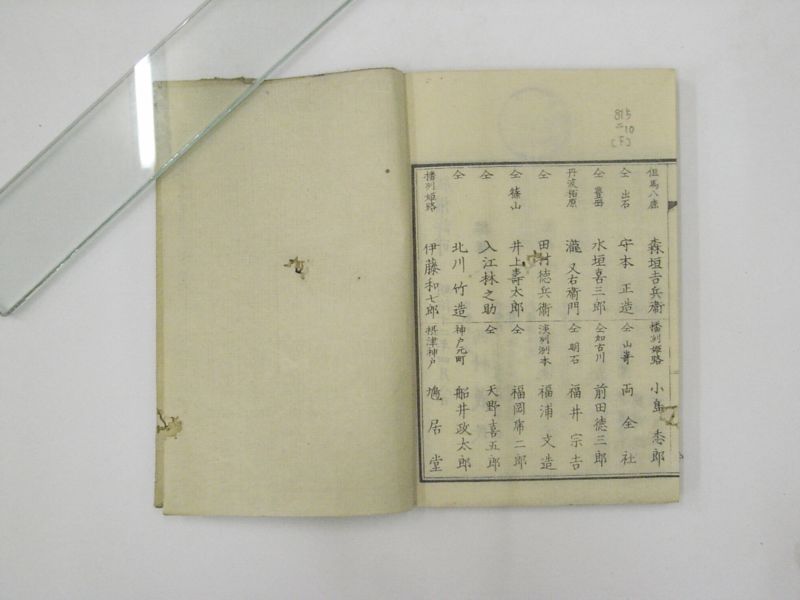 815
二10
[F]
但馬八鹿 森垣吉兵衛
仝 出石 守本正造
仝 豊岡 水垣喜三郎
丹波栢原 瀧又右衛門
仝 田村徳兵衛
仝 篠山 井上壽太郎
仝 入江林之助
仝 北川竹造
播刕姫路 伊藤和七郎
播刕姫路 小島 郎
仝 山嵜 両全社
仝 加古川 前田徳三郎
仝 明石 福井宗吉
淡刕洲本 福浦文造
仝 福岡 二郎
仝 天野喜五郎
神戸元町 船井政太郎
摂津神戸 鳩居堂